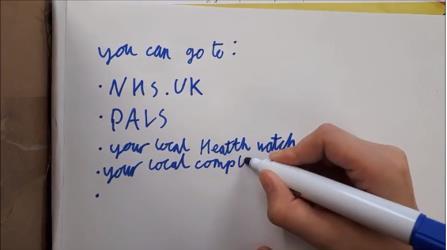 you can go to :
· NHS.UK
· PALS
· your local Health watch
· your local compl
·